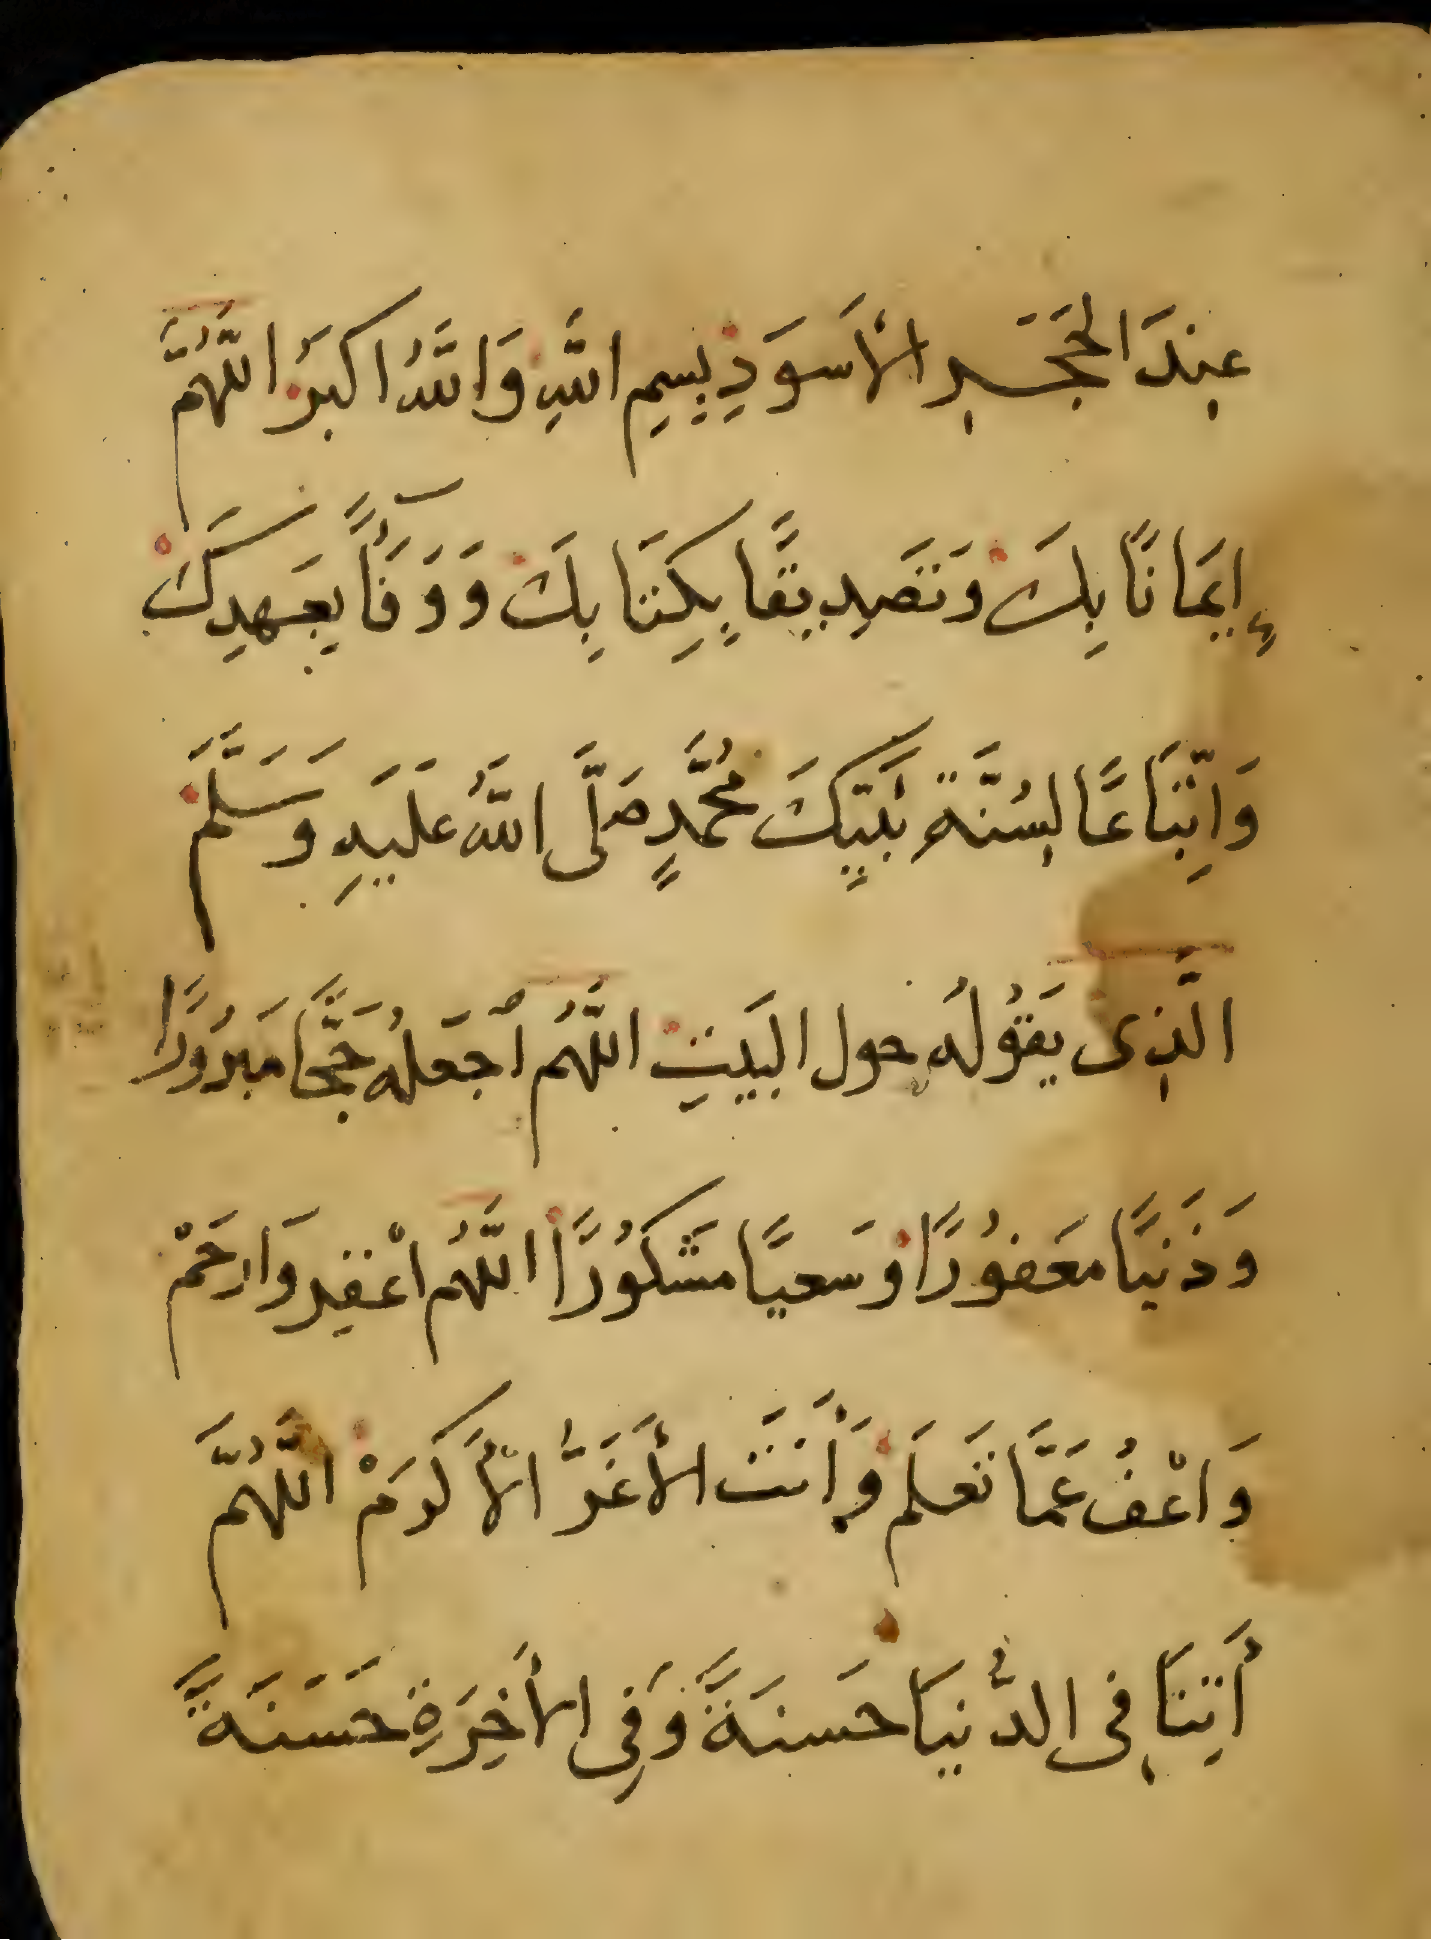 عِندَ الحَجَرِ الأَسوَدِ بِسِمِ اللَّهِ وَاللَّهُ اكبَرُ اللَّهُمَّ
إِيمَانًا بِكَ وَتَصَدِيقًا بِكِتَابِكَ وَوَفَآًُ بِعَهدِكَ
وَاِتّبَاعًا لِسُنَّةِ نَبِيِّكَ مُحَمَّدٍ صَلَّى اللَّهُ عَلَيهِ وَسَلَّمَ
الَّذِى يَقُولُه حول البَيتِ اللَّهُم اْجَعَلهُ حَجَّا مَبرُورًا
وَذَنبًا مغَفُورًا وَسَعيًا مَشكُورًا اللَّهُم اغْفِر وَارحَمْ
وَاعْفُ عَمَّا تَعَلَم وَأَنتَ الأَعَزُّ الأَكرَمْ اللَّهُمَّ
أَتِنَا فِى الدُّنيَا حَسنَةً وَفِى الأَخِرَةِ حَسَنَةً